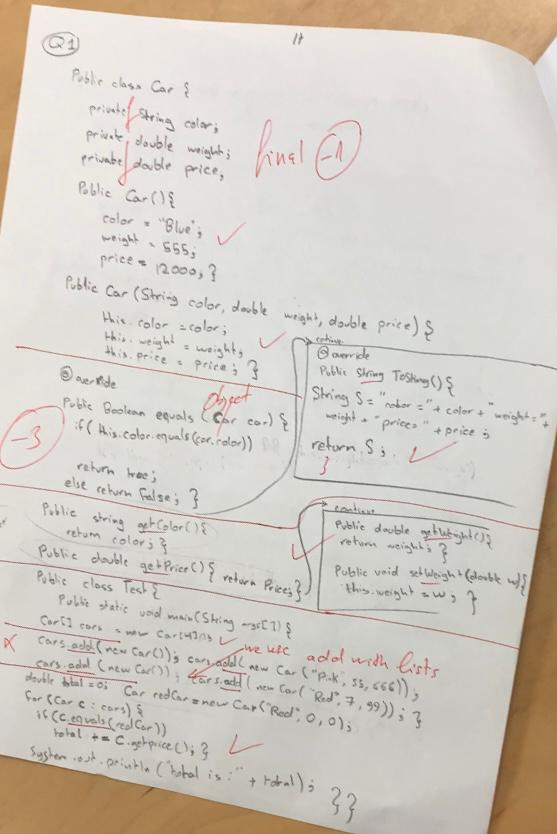 Q1
Public class Car {
private String color;
private double weight;
private double price;
final -1
Public Car(){
color = "Blue";
weight = 555;
price = 12000; }
Public Car (String color, double weight, double price) {
this.color = color;
this.weight = weight;
this.price = price; }
@override
Public Boolean equals (Car car) {
Object
if( this.color.equals(car.color))
-3
return true;
else return False; }
@override
Public String ToString() {
String S = "color =" + color + "weight =" +
weight + "price=" + price ;
return S ;
}
Public string getColor(){
return color; }
Public double getPrice() { return Price; }
continue
Public double getWeight(){
return weight; }
Public void setWeight (double w){
this.weight = w; }
Public class Test {
Public static void main (String args[]) {
Car[] cars = new Car[4];
we use add with lists
X
cars.add(new Car()); cars.add( new Car ("Pink", 55, 666));
cars.add (new Car()); cars.add( new Car( "Red", 7, 99)); }
double total =0; Car redCar = new Car("Red", 0, 0);
for (Car c : cars) {
if (c.equals(redCar))
total += c.getprice(); }
System.out.println ("total is :" + total) ;
}}